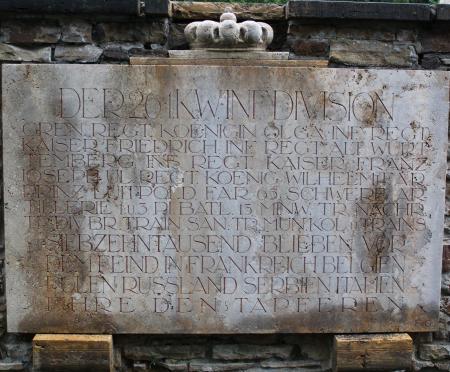 DER 26 I KW INF DIVISION
GREN REGT KOENIGIN OLGA INF REGT
KAISER FRIEDRICH INF REGT ALT WURT
TEMBERG INF REGT KAISER FRANZ
JOSEPH REGT KOENIG WILHELM FAR
PRINZ LUITPOLD FAR 65 SCHWERE AR
TILLERIE PI BATL 13 MINW TR NACHR
DIV BR TRAIN SAN TR MUN KOL TRAINS
SIEBZEHNTAUSEND BLIEBEN VOR
DEM FEIND IN FRANKREICH BELGIEN
POLEN RUSSLAND SERBIEN ITALIEN
EHRE DEN TAPFEREN